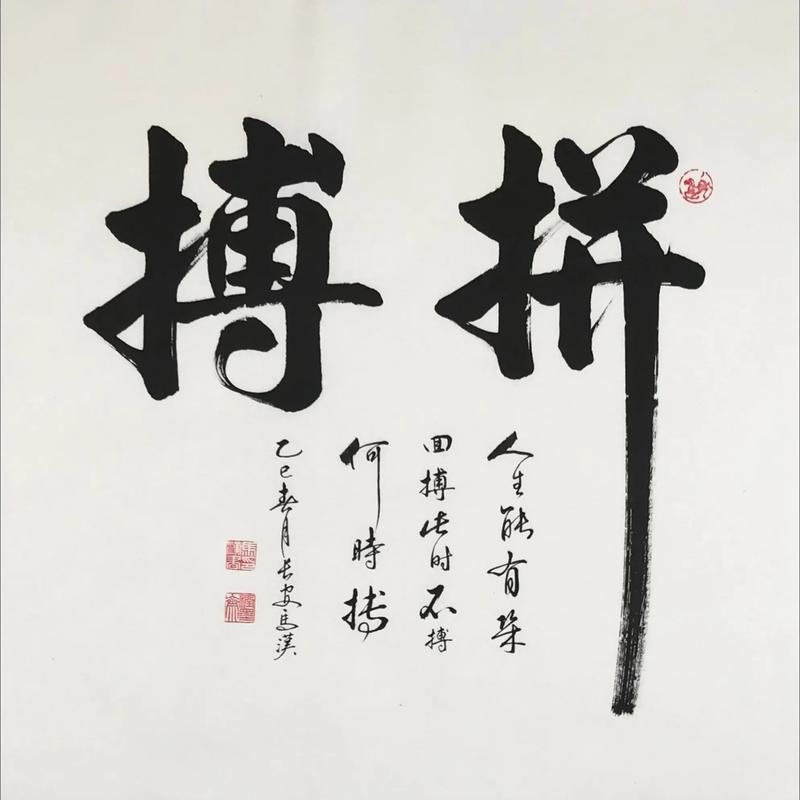 拼搏
人生能有幾
回搏此时不搏
何時搏
乙巳春月长安馬漢